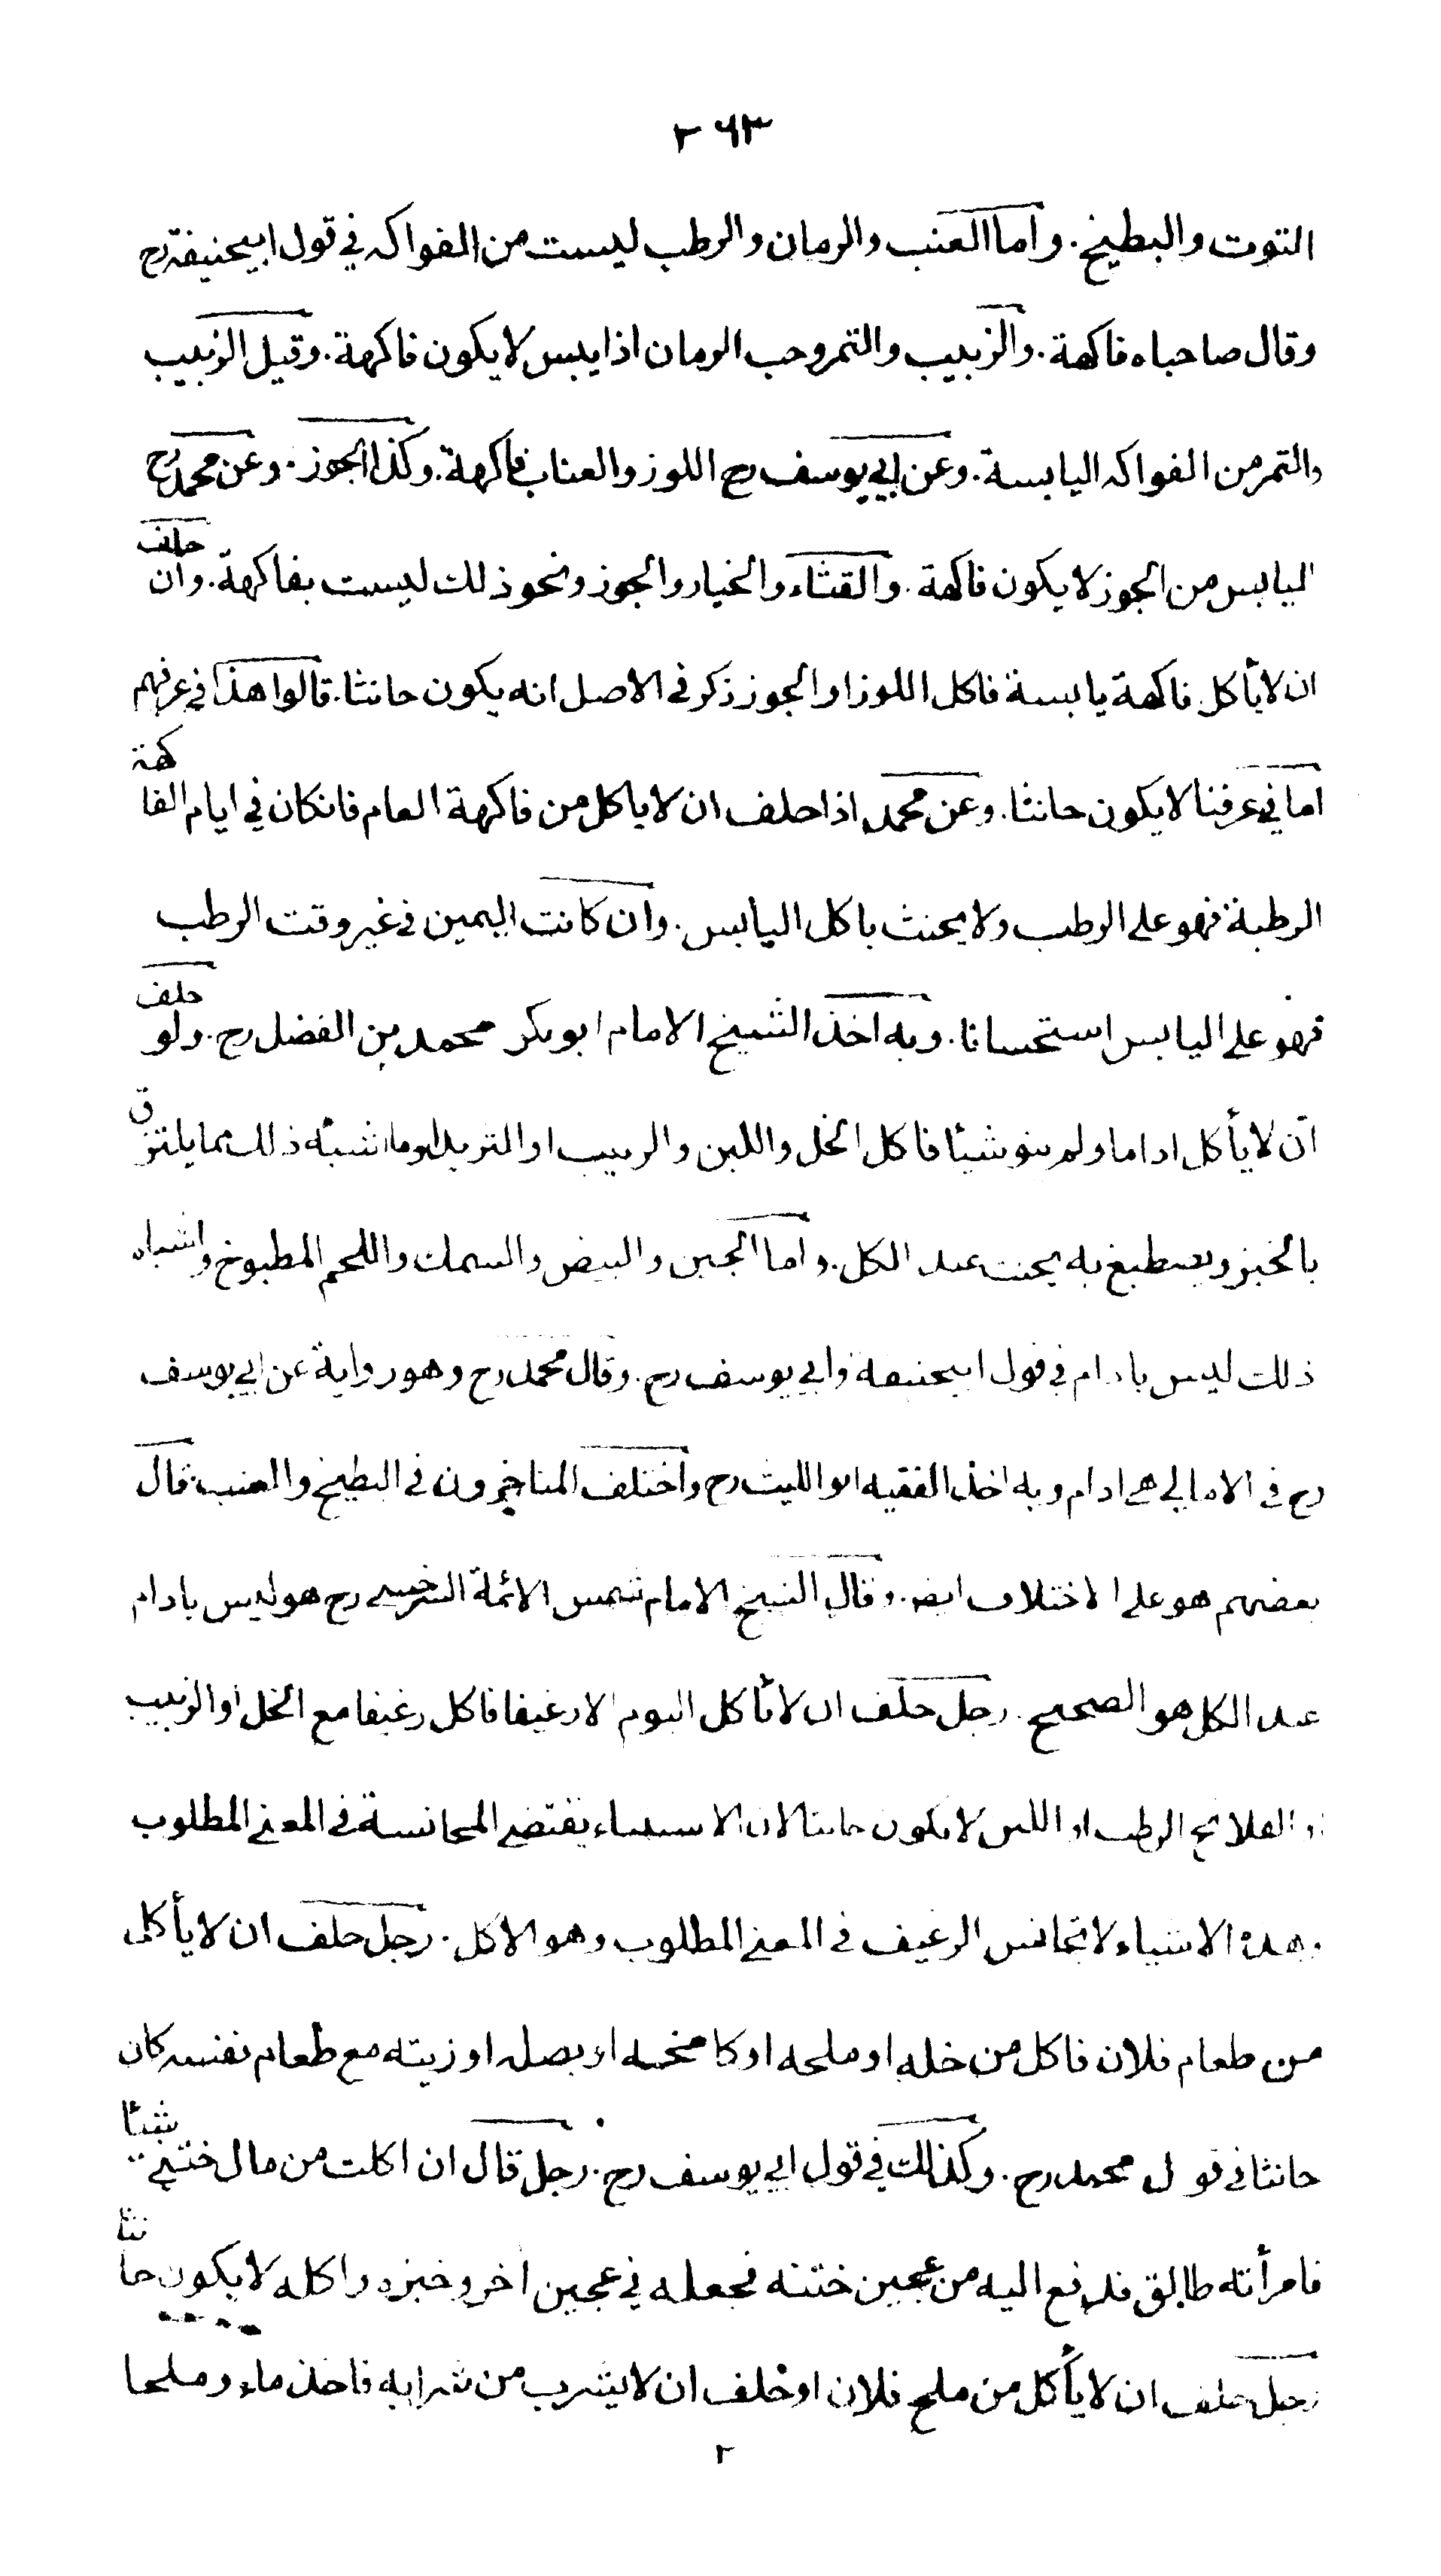 ٢٦٣
التوت والبطيخ. واما العنب والرمان والرطب ليست من الفواكه في قول ابيحنيفة رح
وقال صاحباه فاكهة. والزبيب والتمر وحب الرمان اذا يبس لا يكون فاكهة. وقيل الزبيب
والتمر من الفواكه اليابسة. وعن ابي يوسف رح اللوز والعناب فاكهة. وكذا الجوز. وعن محمد رح
اليابس من الجوز لا يكون فاكهة. والقثاء والخيار والجوز ونحو ذلك ليست بفاكهة. وان حلف
ان لا يأكل فاكهة يابسة فاكل اللوز او الجوز ذكر في الاصل انه يكون حانثا. قالوا هذا في عرفهم
اما في عرفنا لا يكون حانثا. وعن محمد اذا حلف ان لا ياكل من فاكهة العام فانكان في ايام الفاكهة
الرطبة فهو على الرطب ولا يحنث باكل اليابس. وان كانت اليمين في غير وقت الرطب
فهو على اليابس استحسانا. وبه اخذ الشيخ الامام ابو بكر محمد بن الفضل رح. ولو حلف
ان لا يأكل اداما ولم ينو شيئا فاكل الخل واللبن والزبيب او وما اشبه ذلك مما يلتزق
بالخبز ويصطبغ به يحنث عند الكل. واما الجبن والبيض والسمك واللحم المطبوخ واشباه
ذلك ليس بادام في قول ابيحنيفة وابي يوسف رح. وقال محمد رح وهو رواية عن ابي يوسف
رح في الامالي هي ادام وبه اخذ الفقيه ابو الليث رح واختلف المتاخرون في البطيخ والعنب. قال
بعضهم هو على الاختلاف ايضا. وقال الشيخ الامام شمس الائمة السرخسي رح هو ليس بادام
عند الكل هو الصحيح. رجل حلف ان لا يأكل اليوم الا رغيفا فاكل رغيفا مع الخل او الزبيب
او الرطب او اللبن لا يكون حانثا لان الاستثناء يقتضي المجانسة في المعنى المطلوب
وهذه الاشياء لا تجانس الرغيف في المعنى المطلوب وهو الاكل. رجل حلف ان لا يأكل
من طعام فلان فاكل من خله او ملحه او كامخه او بصله او زيته مع طعام نفسه كان
حانثا في قول محمد رح. وكذلك في قول ابي يوسف رح. رجل قال ان اكلت من مال ختني شيئا
فامرأته طالق فدفع اليه من عجين ختنه فجعله في عجين اخر وخبزه واكله لا يكون حانثا
رجل حلف ان لا يأكل من ملح فلان او حلف ان لا يشرب من شرابه فاخذ ماء وملحا
٢